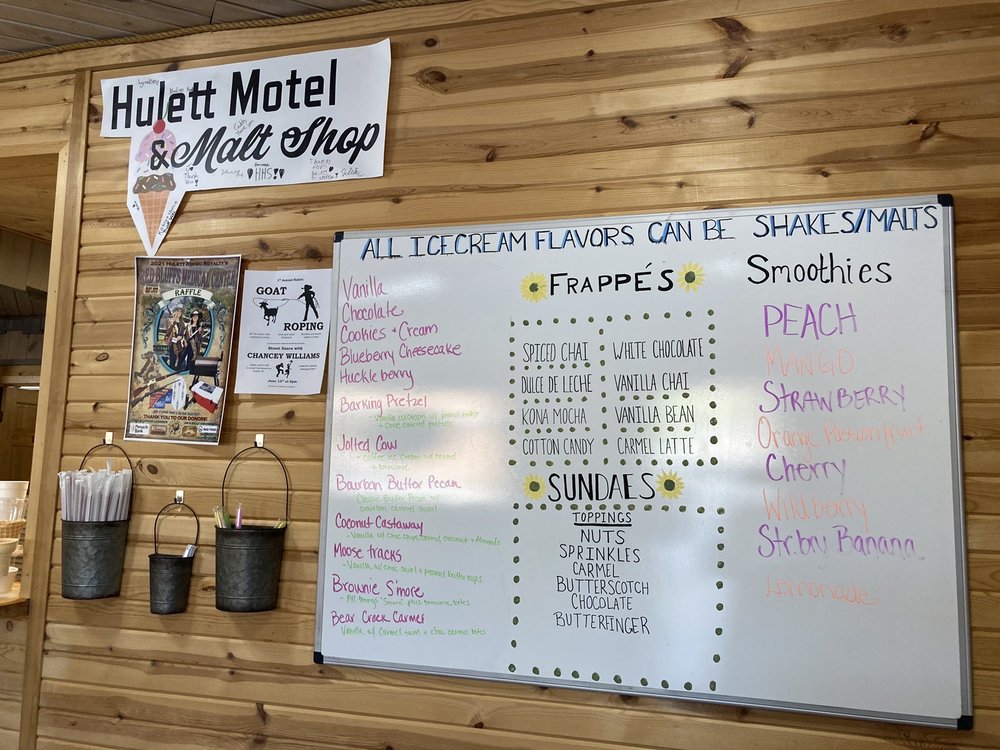 Hulett Motel
& Malt Shop
HHS!
2021 HULETT RODEO ROYALTY'S
RED BLUFFS MEDICAL CENTER
RAFFLE
THANK YOU TO OUR DONORS!
GOAT
ROPING
Street Dance with
CHANCEY WILLIAMS
ALL ICECREAM FLAVORS CAN BE SHAKES/MALTS
Vanilla
Chocolate
Cookies + Cream
Blueberry Cheesecake
Huckleberry
Barking Pretzel
+ choc covered pretzels
Jolted Cow
- coffee ice cream w/ carmel
+ brownie
Bourbon Butter Pecan
Classic Butter Pecan w/
bourbon caramel swirl
Coconut Castaway
- Vanilla w/ choc chips, carmel, coconut + Almonds
Moose tracks
- Vanilla w/ choc swirl + peanut butter cups
Brownie S'more
- All things "Smore" plus brownie bites
Bear Creek Carmel
Vanilla w/ Carmel swirl + choc carmel bites
FRAPPÉS
SPICED CHAI
WHITE CHOCOLATE
DULCE DE LECHE
VANILLA CHAI
KONA MOCHA
VANILLA BEAN
COTTON CANDY
CARMEL LATTE
SUNDAES
TOPPINGS
NUTS
SPRINKLES
CARMEL
BUTTERSCOTCH
CHOCOLATE
BUTTERFINGER
Smoothies
PEACH
MANGO
STRAWBERRY
Orange Passionfruit
Cherry
Wildberry
Strbry Banana
Lemonade